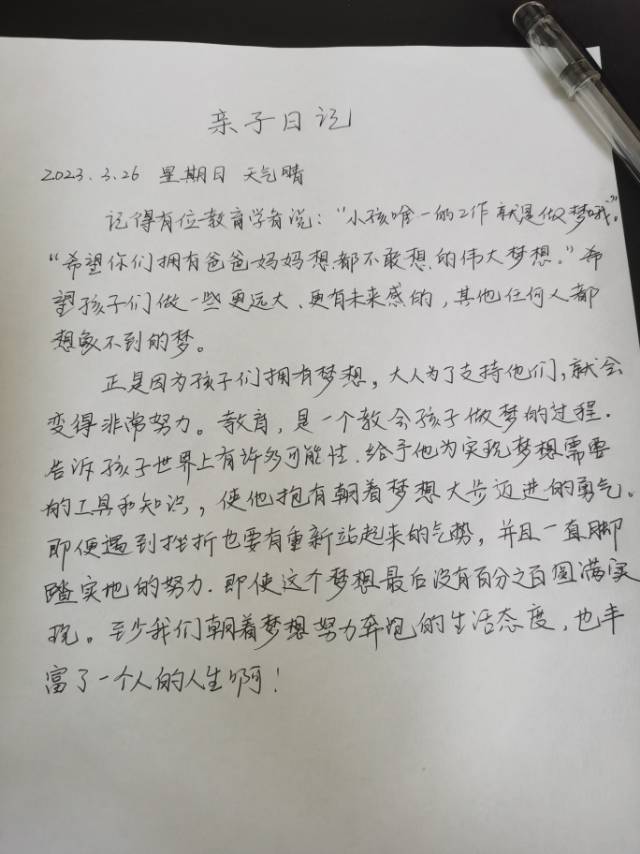 亲子日记
2023.3.26 星期日 天气晴
记得有位教育学者说：“小孩唯一的工作就是做梦哦”。
“希望你们拥有爸爸妈妈想都不敢想的伟大梦想。”希
望孩子们做一些更远大、更有未来感的，其他任何人都
想象不到的梦。
正是因为孩子们拥有梦想，大人为了支持他们，就会
变得非常努力。教育，是一个教会孩子做梦的过程.
告诉孩子世界上有许多可能性.给予他为实现梦想需要
的工具和知识，使他抱有朝着梦想大步迈进的勇气。
即便遇到挫折也要有重新站起来的气势，并且一直脚
踏实地的努力.即使这个梦想最后没有百分之百圆满实
现。至少我们朝着梦想努力奔跑的生活态度，也丰
富了一个人的人生啊！